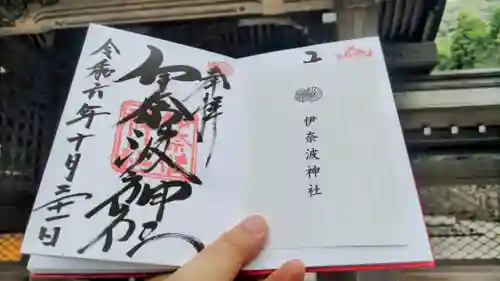 奉拝
伊奈波神社
令和六年十月三十一日
伊奈波神社